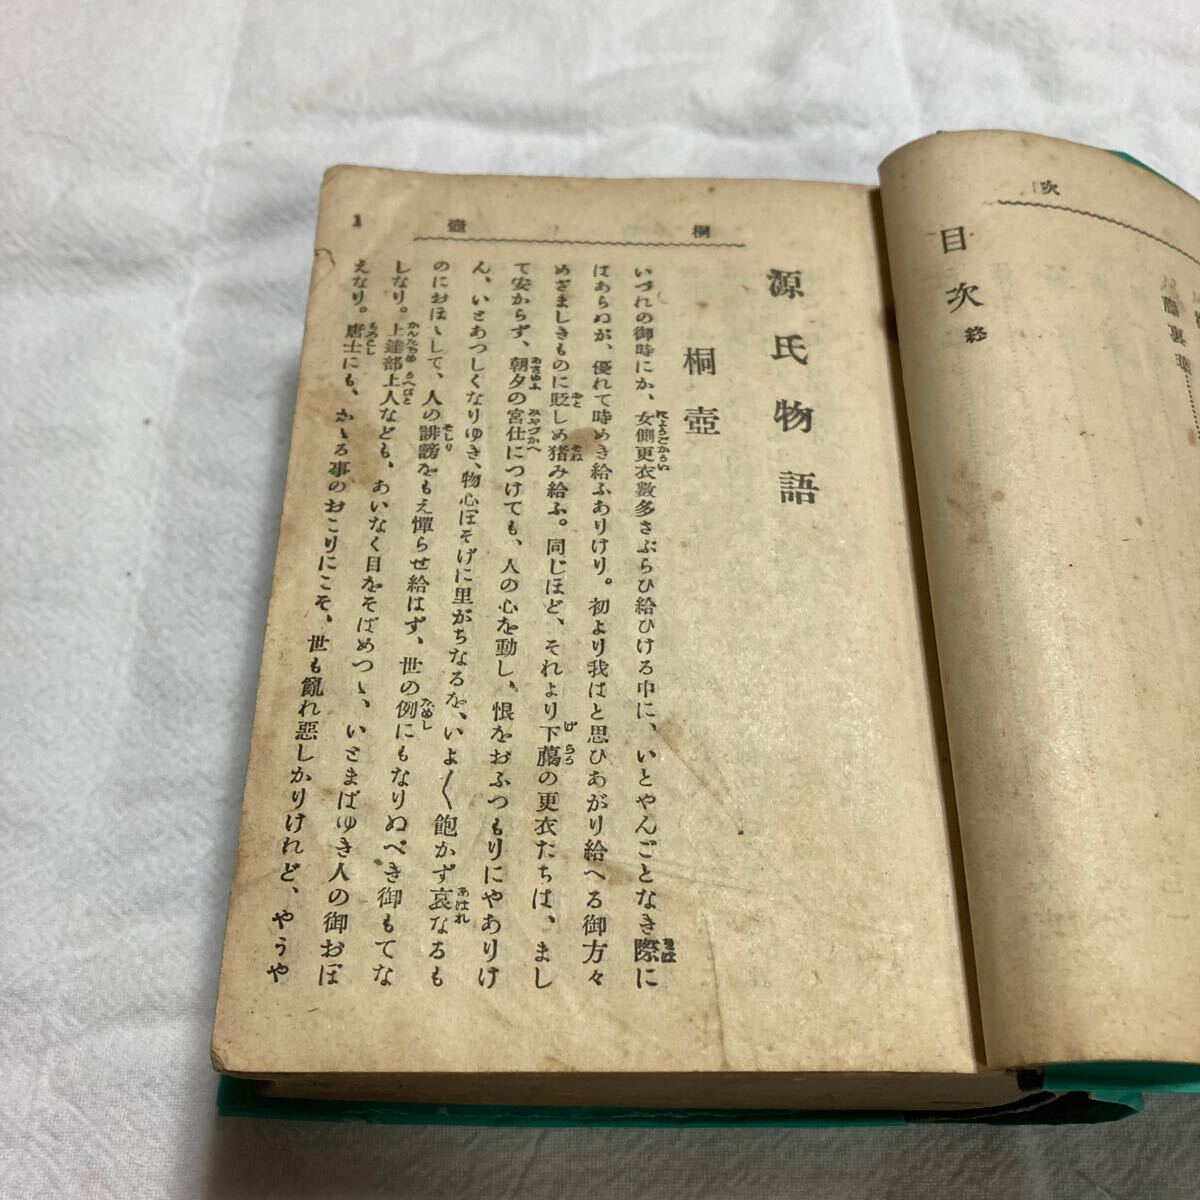 次
目次 終
藤裏葉
桐壺
1
源氏物語
桐壺
いづれの御時にか、女御更衣數多さぶらひ給ひける中に、いとやんごとなき際に
はあらぬが、優れて時めき給ふありけり。初より我はと思ひあがり給へる御方々
めざましきものに貶しめ猜み給ふ。同じほど、それより下﨟の更衣たちは、まし
て安からず、朝夕の宮仕につけても、人の心を動し、恨をおふつもりにやありけ
ん、いとあつしくなりゆき、物心ぼそげに里がちなるを、いよ〳〵飽かず哀なるも
のにおぼゝして、人の誹謗をもえ憚らせ給はず、世の例にもなりぬべき御もてな
しなり。上達部上人なども、あいなく目をそばめつゝ、いとまばゆき人の御おぼ
えなり。唐土にも、かゝる事のおこりにこそ、世も亂れ惡しかりけれど、やうや